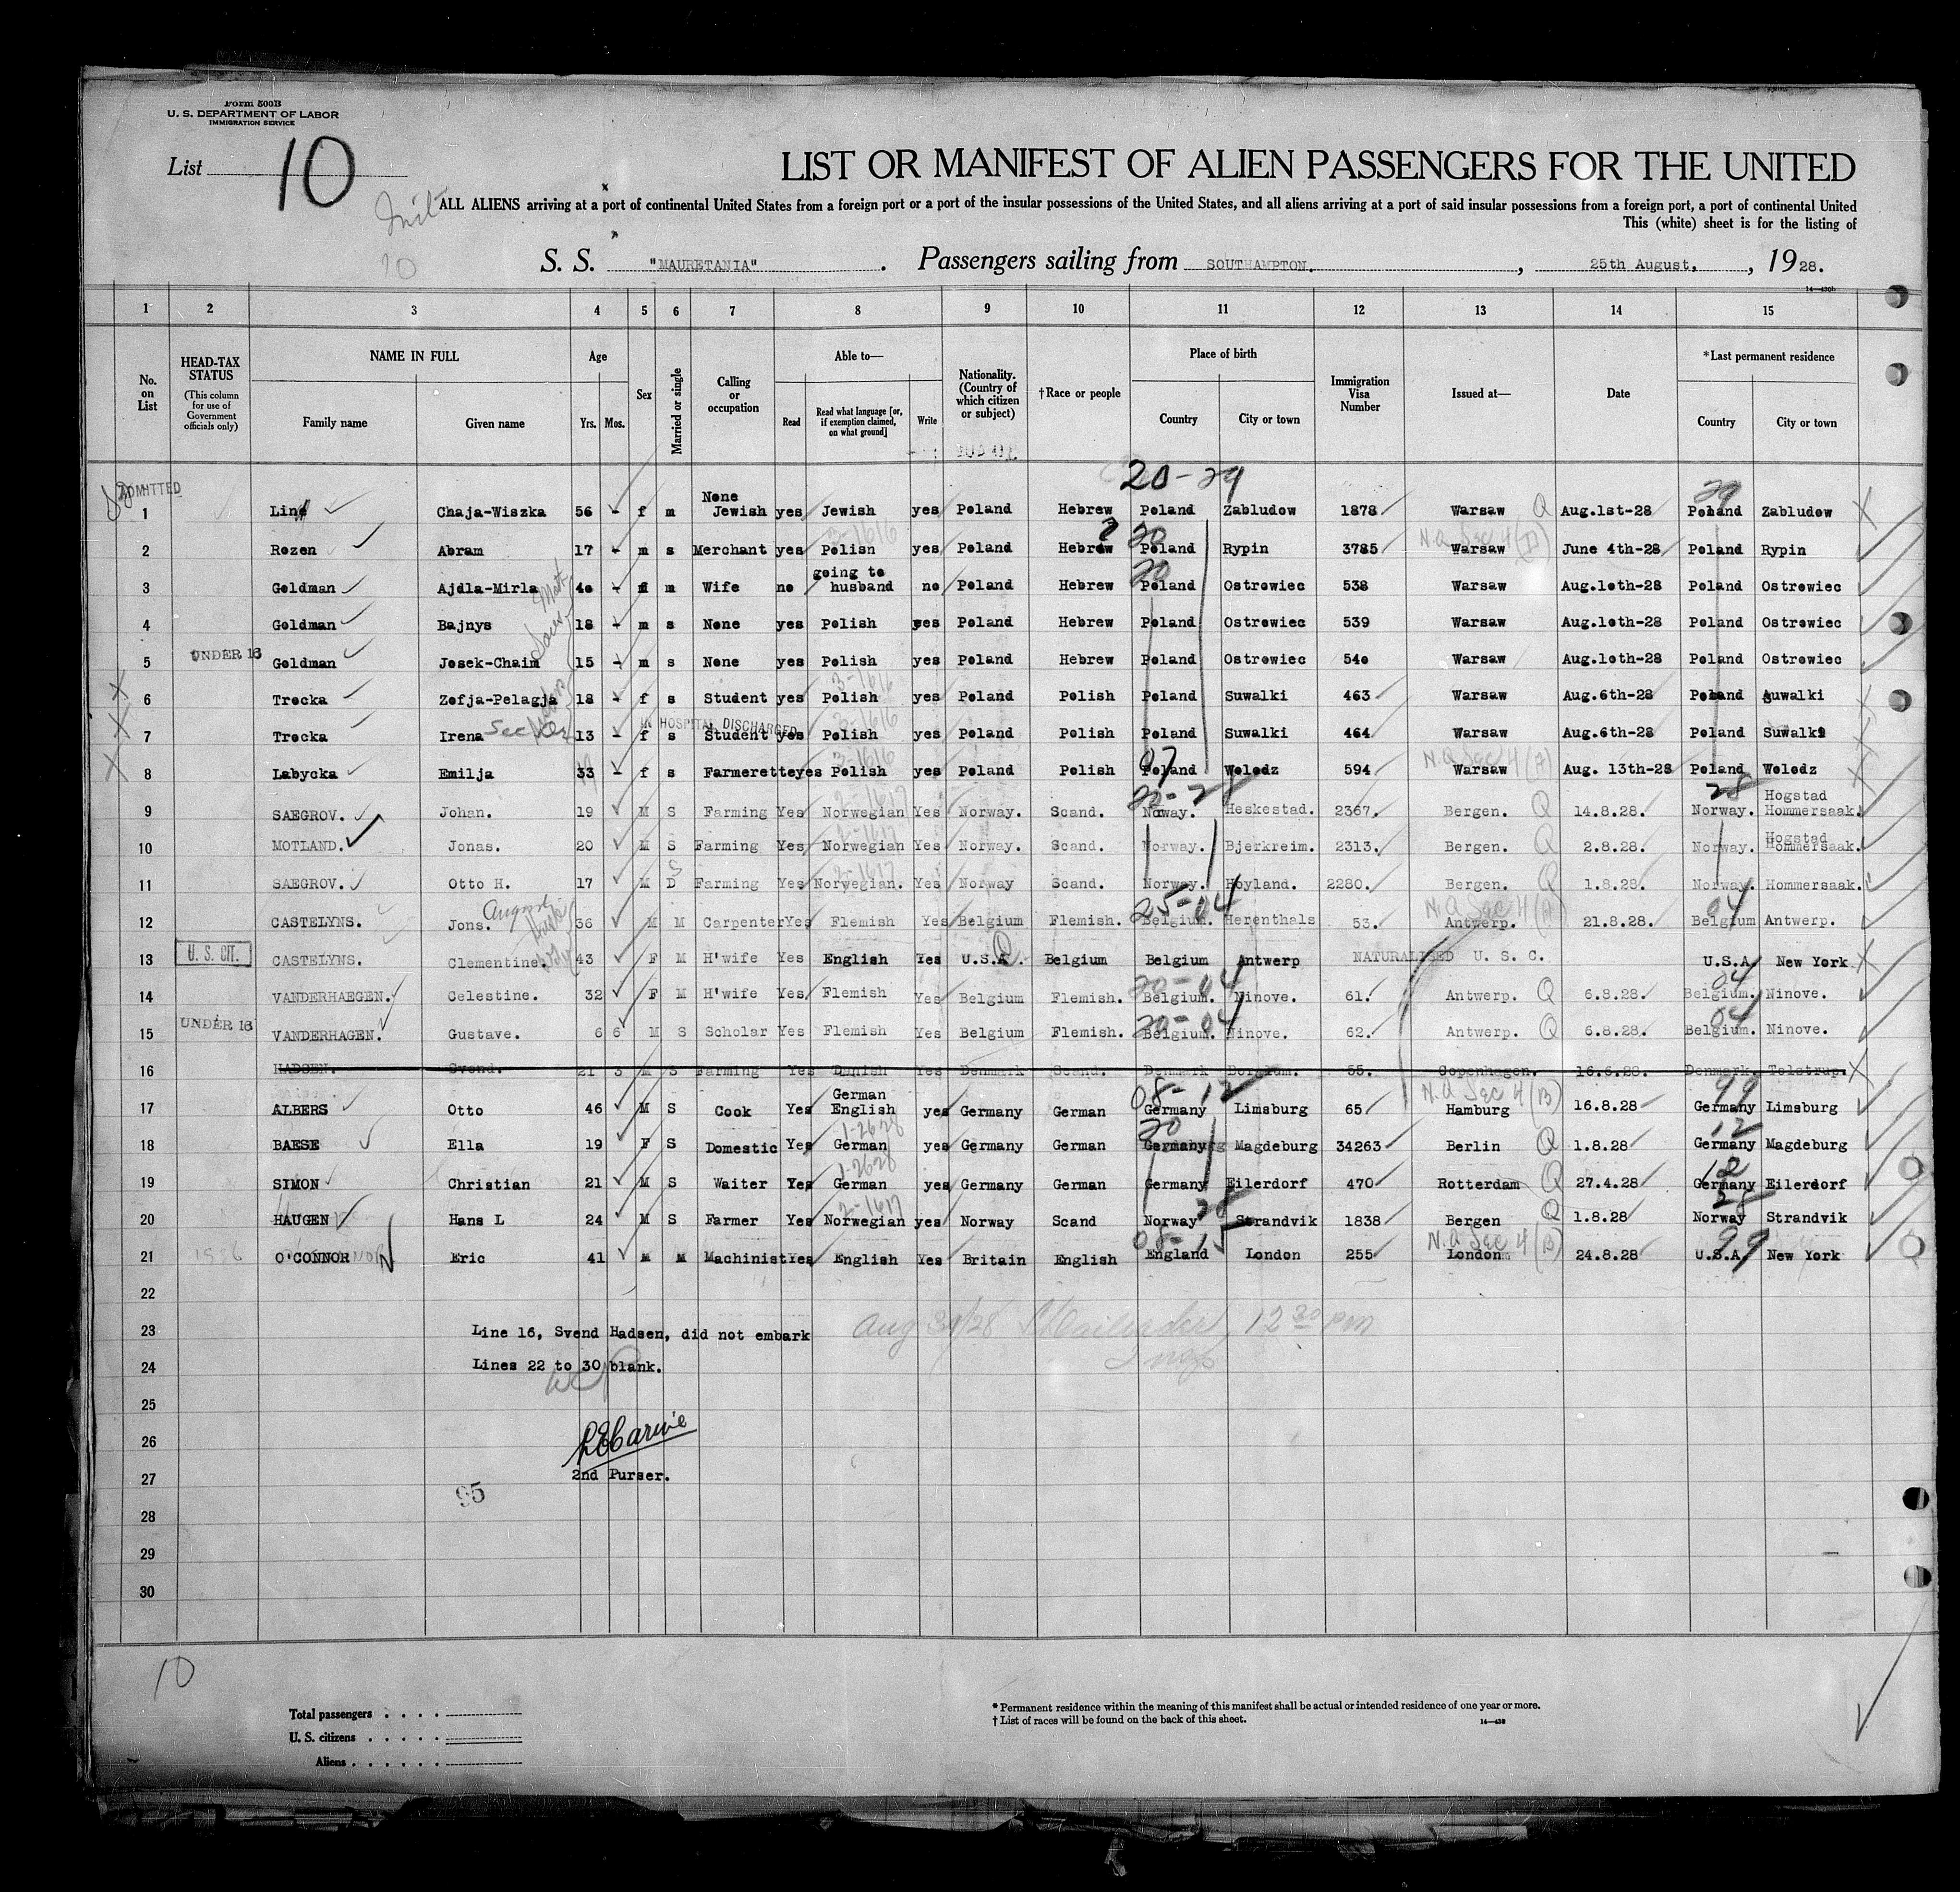 Form 500B
U. S. DEPARTMENT OF LABOR
IMMIGRATION SERVICE
List 10
LIST OR MANIFEST OF ALIEN PASSENGERS FOR THE UNITED
ALL ALIENS arriving at a port of continental United States from a foreign port or a port of the insular possessions of the United States, and all aliens arriving at a port of said insular possessions from a foreign port, a port of continental United
This (white) sheet is for the listing of
10
S. S. "MAURETANIA". Passengers sailing from SOUTHAMPTON. , 25th August, , 1928.
14—430b
1 2 3 4 5 6 7 8 9 10 11 12 13 14 15
No. on List
HEAD-TAX STATUS (This column for use of Government officials only)
NAME IN FULL
Family name Given name
Age
Yrs. Mos.
Sex
Married or single
Calling or occupation
Able to—
Read Read what language [or, if exemption claimed, on what ground] Write
Nationality. (Country of which citizen or subject)
†Race or people
Place of birth
Country City or town
Immigration Visa Number
Issued at—
Date
*Last permanent residence
Country City or town
20-29
ADMITTED
None 29
1 Chaja-Wiszka 56 - f m Jewish yes Jewish yes Poland Hebrew Poland Zabludow 1878 Warsaw Q Aug.1st-28 Poland Zabludow
3-1616 20 N.A Sec 4 (D)
2 Rozen Abram 17 - m s Merchant yes Polisn yes Poland Hebrew Poland Rypin 3785 Warsaw June 4th-28 Poland Rypin
going to 20
3 Goldman Ajdla-Mirla 40 - f m Wife no husband no Poland Hebrew Poland Ostrowiec 538 Warsaw Aug.10th-28 Poland Ostrowiec
4 Goldman Bajnys 18 - m s None yes Polish yes Poland Hebrew Poland Ostrowiec 539 Warsaw Aug.10th-28 Poland Ostrowiec
UNDER 16
5 Goldman Josek-Chaim 15 - m s None yes Polish yes Poland Hebrew Poland Ostrowiec 540 Warsaw Aug.10th-28 Poland Ostrowiec
3-1616
6 Trocka Zofja-Pelagja 18 - f s Student yes Polish yes Poland Polish Poland Suwalki 463 Warsaw Aug.6th-28 Poland Suwalki
IN HOSPITAL DISCHARGED 3-1616
7 Trocka Irena 13 - f s Student yes Polish yes Poland Polish Poland Suwalki 464 Warsaw Aug.6th-28 Poland Suwalki
3-1616 07 N.A Sec 4 (A)
8 Labycka Emilja 33 - f s Farmerette yes Polish yes Poland Polish Poland Weledz 594 Warsaw Aug. 13th-28 Poland Weledz
2-1617 20-28 28 Hogstad
9 SAEGROV. Johan. 19 M S Farming Yes Norwegian Yes Norway. Scand. Noway. Heskestad. 2367. Bergen. Q 14.8.28. Norway. Hommersaak.
2-1617 Hogstad
10 MOTLAND. Jonas. 20 M S Farming Yes Norwegian Yes Norway. Scand. Norway. Bjerkreim. 2313. Bergen. Q 2.8.28. Norway. Hommersaak.
S 2-1617
11 SAEGROV. Otto H. 17 M D Farming Yes Norwegian. Yes Norway Scand. Norway. Hoyland. 2280. Bergen. Q 1.8.28. Norway. Hommersaak.
August 25-04 N.A Sec 4 (A) 04
12 CASTELYNS. Jons. 36 M M Carpenter Yes Flemish Yes Belgium Flemish. Belgium. Herenthals 53. Antwerp. 21.8.28. Belgium Antwerp.
U. S. CIT.
13 CASTELYNS. Clementine. 43 F M H'wife Yes English Yes U.S.A. Belgium Belgium Antwerp NATURALISED U. S. C. U.S.A. New York
20-04 04
14 VANDERHAEGEN. Celestine. 32 F M H'wife Yes Flemish Yes Belgium Flemish. Belgium. Ninove. 61. Antwerp. Q 6.8.28. Belgium. Ninove.
UNDER 16 20-04 04
15 VANDERHAGEN. Gustave. 6 6 M S Scholar Yes Flemish Yes Belgium Flemish. Belgium. Ninove. 62. Antwerp. Q 6.8.28. Belgium. Ninove.
16 HADSEN. Svend. 21 3 M S Farming Yes Danish Yes Denmark Scand. Denmark 55. Copenhagen. 16.6.28. Denmark. Tolstrup.
German 08-12 N.A Sec 4 (B) 99
17 ALBERS Otto 46 M S Cook Yes English yes Germany German Germany Limsburg 65 Hamburg 16.8.28 Germany Limsburg
1-2628 20 12
18 BAESE Ella 19 F S Domestic Yes German yes Germany German Germany Magdeburg 34263 Berlin Q 1.8.28 Germany Magdeburg
1-2628 12
19 SIMON Christian 21 M S Waiter Yes German yes Germany German Germany Eilerdorf 470 Rotterdam Q 27.4.28 Germany Eilerdorf
2-1617 28 28
20 HAUGEN Hans L 24 M S Farmer Yes Norwegian yes Norway Scand Norway Strandvik 1838 Bergen Q 1.8.28 Norway Strandvik
08-15 N.A Sec 4 (B) 99
21 O'CONNOR Eric 41 M M Machinist Yes English Yes Britain English England London 255 London 24.8.28 U.S.A. New York
22
23 Line 16, Svend Hadsen, did not embark Aug 31/28 12 30 pm
24 Lines 22 to 30 blank.
25
26
27 2nd Purser.
95
28
29
30
10
Total passengers . . . .
U. S. citizens . . . . .
Aliens . . . . . .
* Permanent residence within the meaning of this manifest shall be actual or intended residence of one year or more.
† List of races will be found on the back of this sheet. 14—430